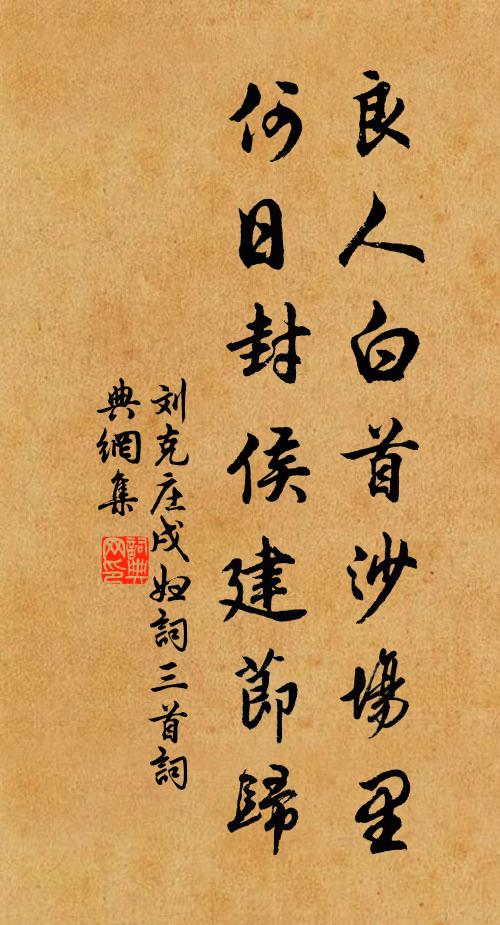 良人白首沙場里
何日封侯建節歸
刘克庄戍妇詞三首詞
典網集
詞典網印